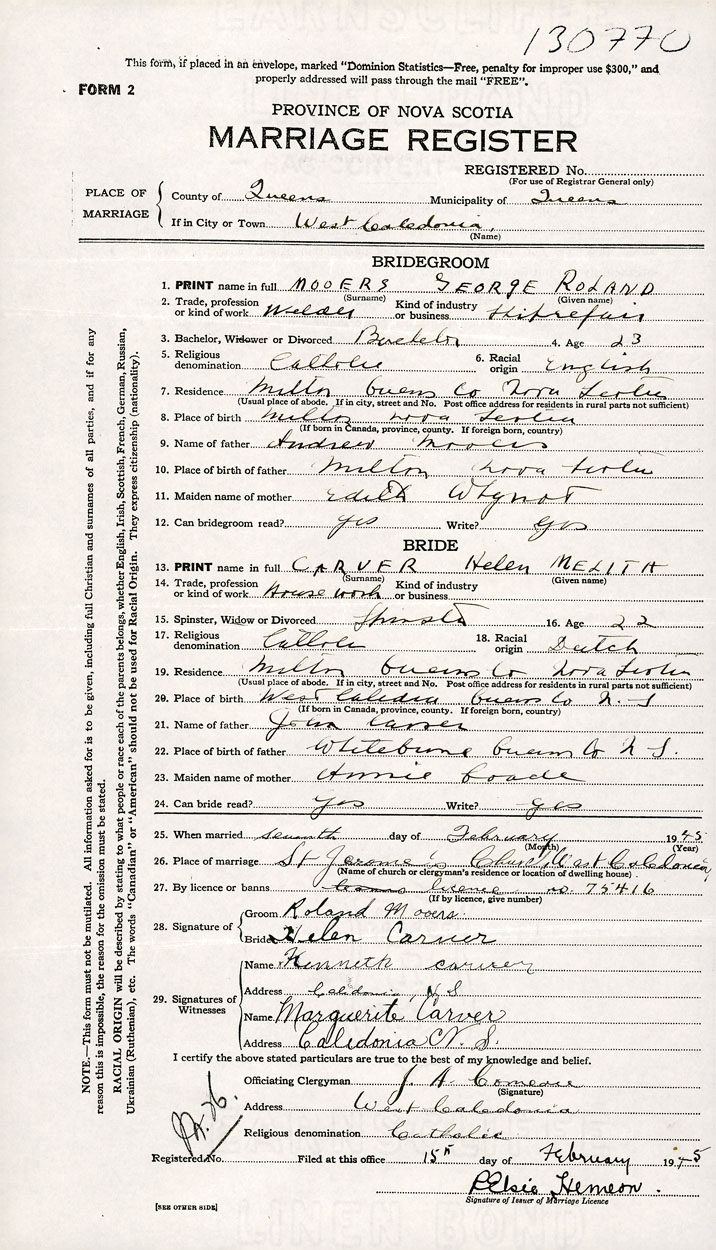 130770
This form, if placed in an envelope, marked "Dominion Statistics—Free, penalty for improper use $300," and
properly addressed will pass through the mail "FREE".
FORM 2
PROVINCE OF NOVA SCOTIA
MARRIAGE REGISTER
REGISTERED No.
(For use of Registrar General only)
PLACE OF MARRIAGE
County of Queens Municipality of Queens
If in City or Town West Caledonia,
(Name)
BRIDEGROOM
1. PRINT name in full MOOERS GEORGE ROLAND
(Surname) (Given name)
2. Trade, profession or kind of work Welder Kind of industry or business Shiprepair
3. Bachelor, Widower or Divorced Bachelor 4. Age 23
5. Religious denomination Catholic 6. Racial origin English
7. Residence Milton Queens Co Nova Scotia
(Usual place of abode. If in city, street and No. Post office address for residents in rural parts not sufficient)
8. Place of birth Milton Nova Scotia
(If born in Canada, province, county. If foreign born, country)
9. Name of father Andrew Mooers
10. Place of birth of father Milton Nova Scotia
11. Maiden name of mother Edith Whynot
12. Can bridegroom read? yes Write? yes
BRIDE
13. PRINT name in full CARVER Helen MELITH
(Surname) (Given name)
14. Trade, profession or kind of work House work Kind of industry or business
15. Spinster, Widow or Divorced Spinster 16. Age 22
17. Religious denomination Catholic 18. Racial origin Dutch
19. Residence Milton Queens Co Nova Scotia
(Usual place of abode. If in city, street and No. Post office address for residents in rural parts not sufficient)
20. Place of birth West Caledonia Queens Co N. S
(If born in Canada, province, county. If foreign born, country)
21. Name of father John Carver
22. Place of birth of father Whiteburne Queens Co N S.
23. Maiden name of mother Annie Coade
24. Can bride read? yes Write? yes
25. When married seventh day of February 1945
(Month) (Year)
26. Place of marriage St Jerome's Church West Caledonia,
(Name of church or clergyman's residence or location of dwelling house)
27. By licence or banns licence no. 75416
(If by licence, give number)
28. Signature of
Groom Roland Mooers.
Bride Helen Carver
29. Signatures of Witnesses
Name Kenneth carver
Address Calidonia, N S
Name Marguerite Carver
Address Calidonia N. S.
I certify the above stated particulars are true to the best of my knowledge and belief.
Officiating Clergyman J. A. Comeau
(Signature)
Address West Caledonia
Religious denomination Catholic
Registered No. Filed at this office 15th day of February 1945
Elsie Hemeon.
Signature of Issuer of Marriage Licence
[SEE OTHER SIDE]
NOTE.—This form must not be mutilated. All information asked for is to be given, including full Christian and surnames of all parties, and if for any
reason this is impossible, the reason for the omission must be stated.
RACIAL ORIGIN will be described by stating to what people or race each of the parents belongs, whether English, Irish, Scottish, French, German, Russian,
Ukrainian (Ruthenian), etc. The words "Canadian" or "American" should not be used for Racial Origin. They express citizenship (nationality).